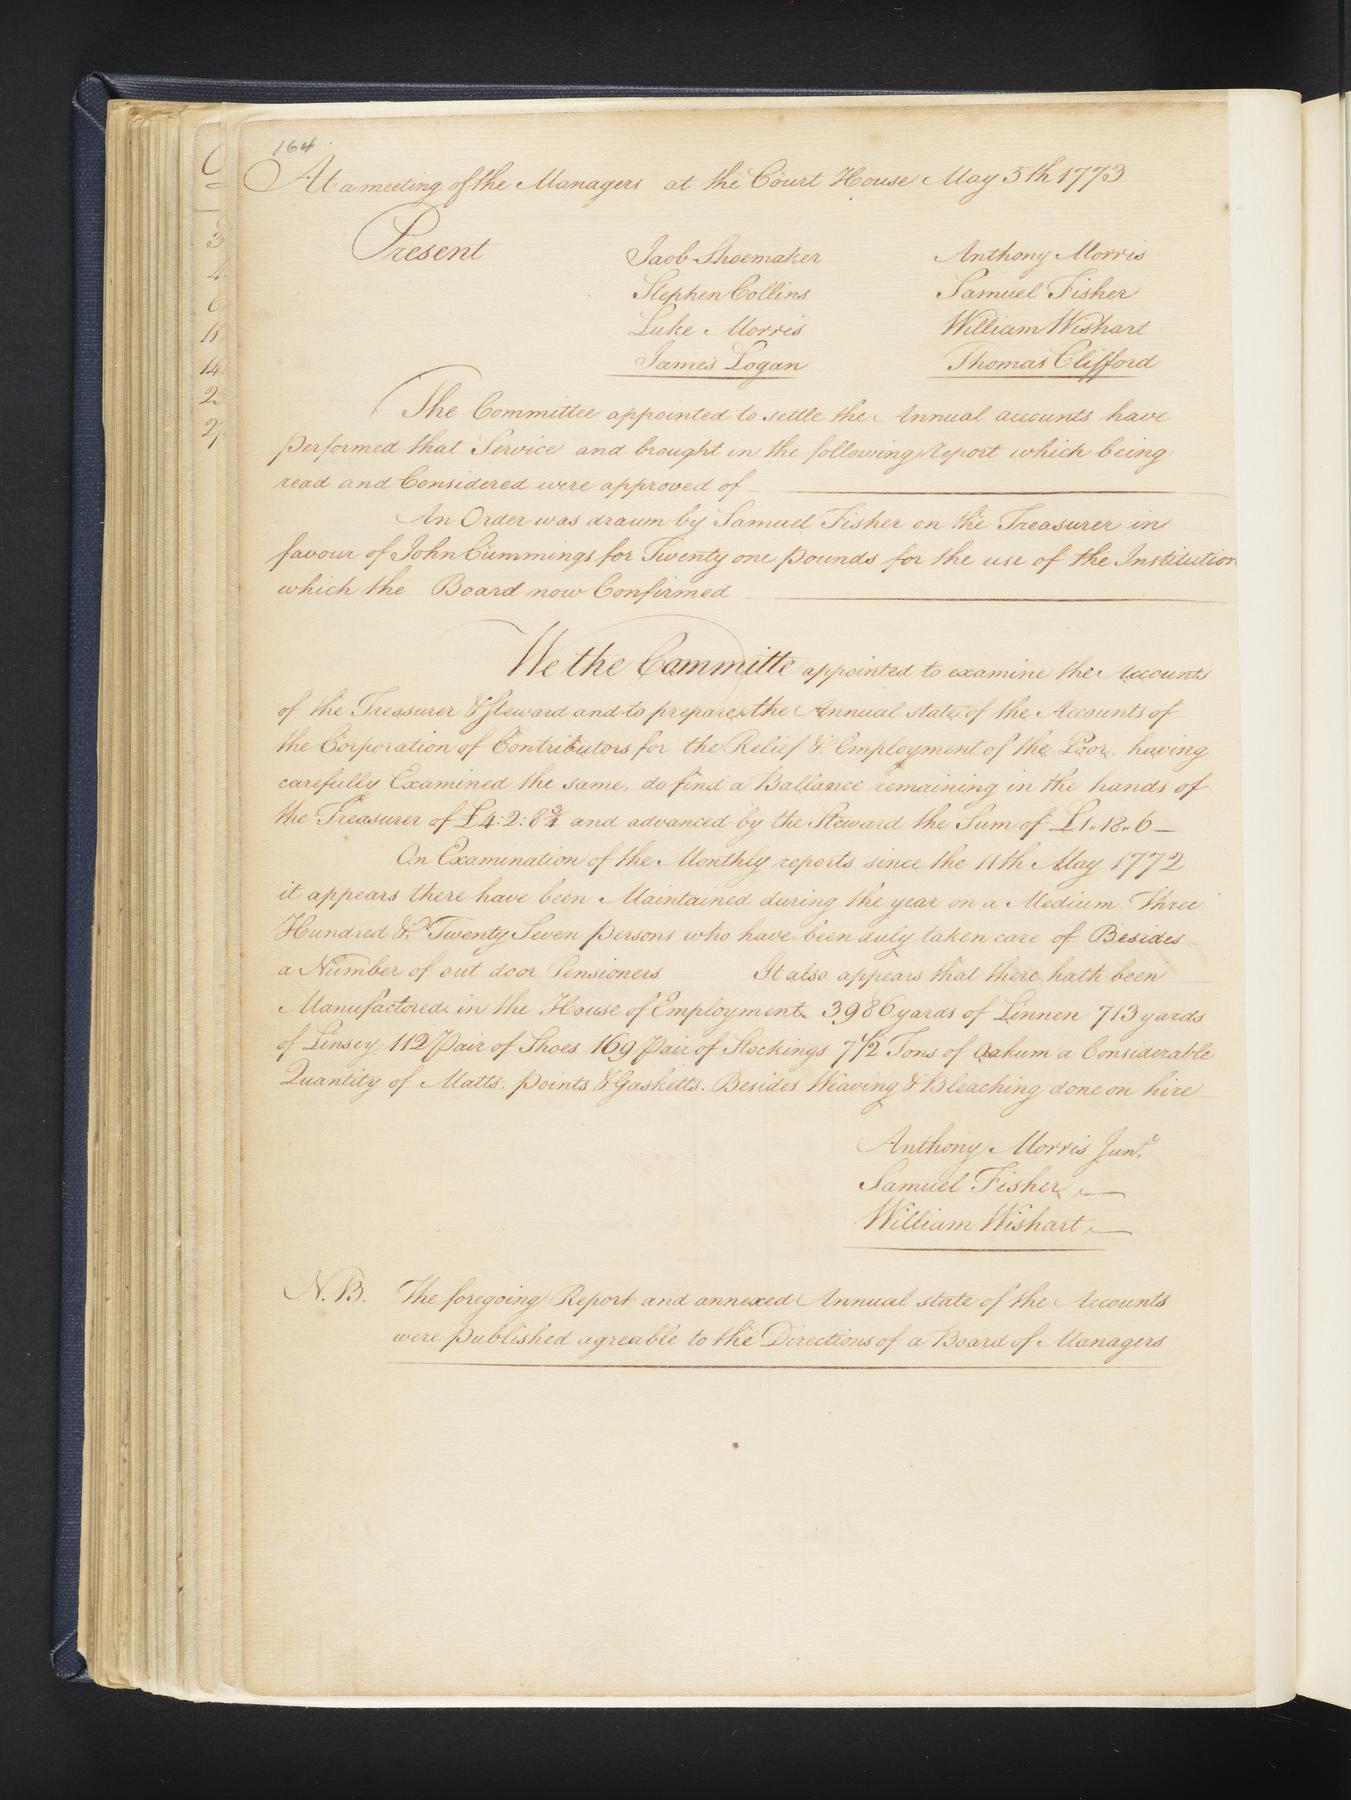 164
At a meeting of the Managers at the Court House May 5th 1773
Present
Jaob Shoemaker Anthony Morris
Stephen Collins Samuel Fisher
Luke Morris William Wishart
James Logan Thomas Clifford
The Committee appointed to settle the Annual accounts have
performed that Service and brought in the following report which being
read and Considered were approved of
An Order was drawn by Samuel Fisher on the Treasurer in
favour of John Cummings for Twenty one pounds for the use of the Institution
which the Board now Confirmed
We the Committe appointed to examine the Accounts
of the Treasurer & Steward and to prepare the Annual state of the Accounts of
the Corporation of Contributors for the Relief & Employment of the Poor, having
carefully Examined the same, do find a Ballance remaining in the hands of
the Treasurer of £4:2:8¾ and advanced by the Steward the Sum of £1"18"6
On Examination of the Monthly reports since the 11th May 1772
it appears there have been Maintained during the year on a Medium Three
Hundred & Twenty Seven persons who have been duly taken care of Besides
a Number of out door Pensioners It also appears that there hath been
Manufactored in the House of Employment 3986 yards of Linnen 713 yards
of Linsey 112 Pair of Shoes 169 Pair of Stockings 7½ Tons of Oakum a Considerable
Quantity of Matts. points & Gasketts. Besides Weaving & Bleaching done on hire
Anthony Morris Junr.
Samuel Fisher
William Wishart
N.B. The foregoing Report and annexed Annual state of the Accounts
were published agreable to the Directions of a Board of Managers